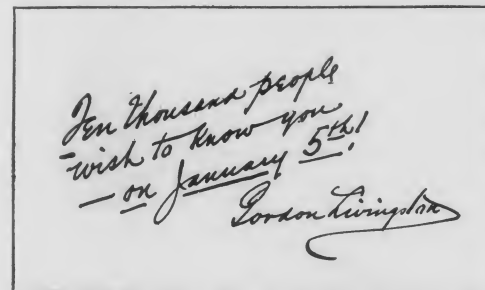 Ten thousand people
wish to know you
— on January 5th!
Gordon Livingston